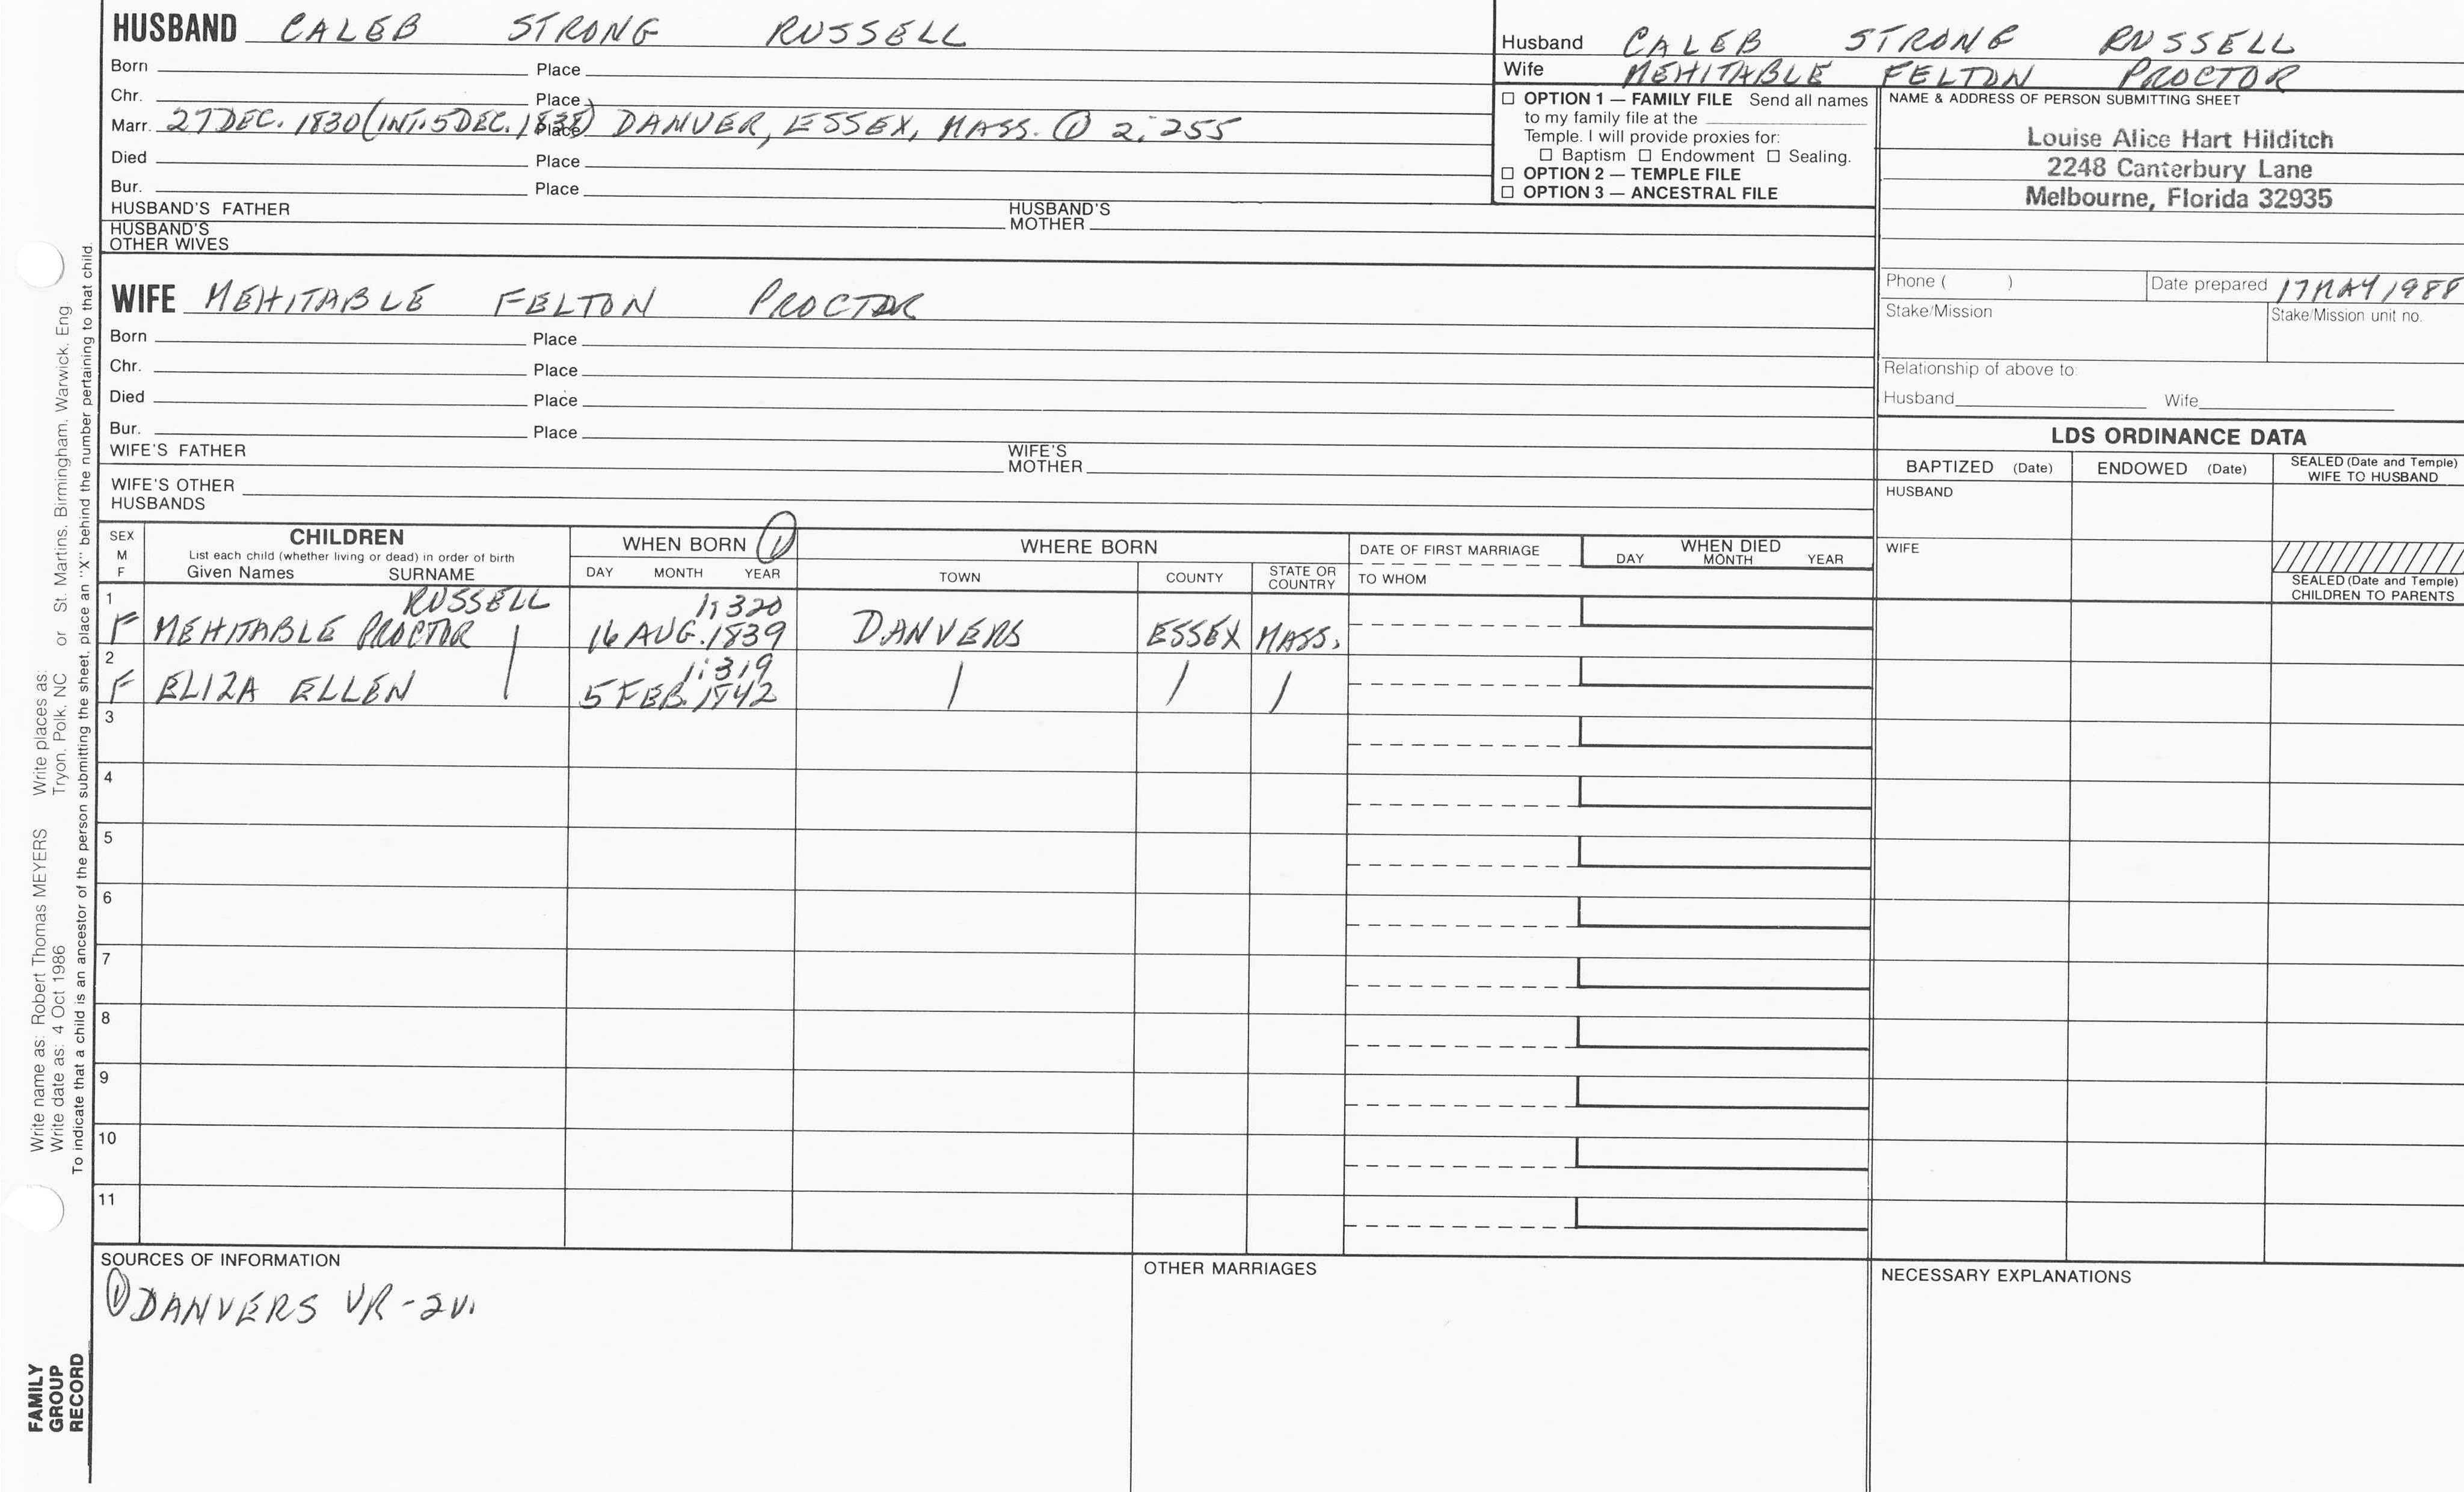 HUSBAND CALEB STRONG RUSSELL
Born Place
Chr. Place
Marr. 27 DEC. 1830 (INT. 5 DEC. 1838) Place DANVER, ESSEX, MASS. ① 2:255
Died Place
Bur. Place
HUSBAND'S FATHER HUSBAND'S MOTHER
HUSBAND'S OTHER WIVES
Husband CALEB STRONG RUSSELL
Wife MEHITABLE FELTON PROCTOR
☐ OPTION 1 — FAMILY FILE Send all names
to my family file at the
Temple. I will provide proxies for:
☐ Baptism ☐ Endowment ☐ Sealing.
☐ OPTION 2 — TEMPLE FILE
☐ OPTION 3 — ANCESTRAL FILE
NAME & ADDRESS OF PERSON SUBMITTING SHEET
Louise Alice Hart Hilditch
2248 Canterbury Lane
Melbourne, Florida 32935
Phone ( ) Date prepared 17 MAY 1988
Stake/Mission Stake/Mission unit no.
Relationship of above to
Husband Wife
WIFE MEHITABLE FELTON PROCTOR
Born Place
Chr. Place
Died Place
Bur. Place
WIFE'S FATHER WIFE'S MOTHER
WIFE'S OTHER
HUSBANDS
LDS ORDINANCE DATA
BAPTIZED (Date) ENDOWED (Date) SEALED (Date and Temple)
WIFE TO HUSBAND
HUSBAND
WIFE
SEALED (Date and Temple)
CHILDREN TO PARENTS
SEX
M
F
CHILDREN
List each child (whether living or dead) in order of birth
Given Names SURNAME
WHEN BORN ①
DAY MONTH YEAR
WHERE BORN
TOWN COUNTY STATE OR COUNTRY
DATE OF FIRST MARRIAGE
TO WHOM
WHEN DIED
DAY MONTH YEAR
1 RUSSELL 1:320
F MEHITABLE PROCTOR | 16 AUG. 1839 DANVERS ESSEX MASS.
2 1:319
F ELIZA ELLEN | 5 FEB. 1842 | | |
3
4
5
6
7
8
9
10
11
SOURCES OF INFORMATION
① DANVERS VR - 2V.
OTHER MARRIAGES
NECESSARY EXPLANATIONS
Write name as: Robert Thomas MEYERS Write places as:
Write date as: 4 Oct 1986 Tryon, Polk, NC or St. Martins, Birmingham, Warwick, Eng
To indicate that a child is an ancestor of the person submitting the sheet, place an "X" behind the number pertaining to that child.
FAMILY
GROUP
RECORD